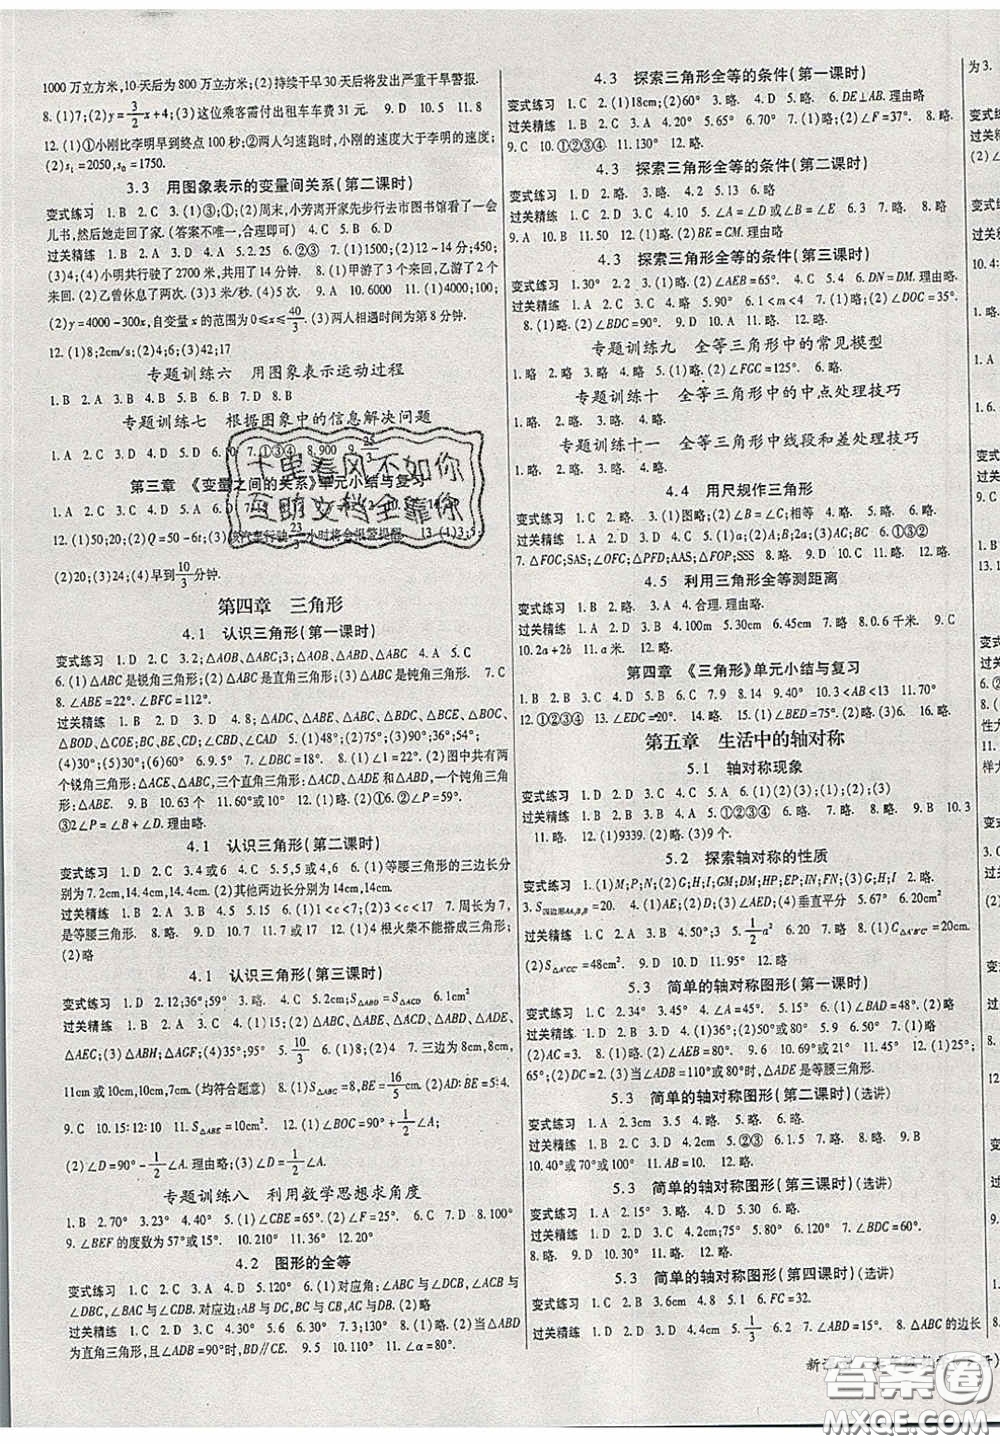 1000万立方米,10天后为800万立方米;(2)持续干旱30天后将发出严重干旱警报.
8.(1)7;(2)y=3/2x+4;(3)这位乘客需付出租车车费31元. 9.D 10.5 11.8
12.(1)①小刚比李明早到终点100秒;②两人匀速跑时,小刚的速度大于李明的速度;
(2)s₁=2050,s₀=1750.
3.3 用图象表示的变量间关系(第二课时)
变式练习 1.B 2.C 3.(1)③;①;(2)周末,小芳离开家先步行去市图书馆看了一会
儿书,然后她走回了家.(答案不唯一,合理即可) 4.C 5.B 6.D
过关精练 1.B 2.A 3.C 4.D 5.C 6.②③ 7.(1)1500;(2)4;(3)450;
(3)4;(4)小明共行驶了2700米,共用了14分钟. 8.(1)甲游了3个来回,乙游了2个
来回.(2)乙曾休息了两次.(3)3米/秒.(4)3次 9.A 10.6000 11.(1)4000,100;
(2)y=4000-300x,自变量x的范围为0≤x≤40/3.(3)两人相遇时间为第8分钟.
12.(1)8;2cm/s;(2)4;6;(3)42;17
专题训练六 用图象表示运动过程
1.B 2.A 3.D 4.C 5.D 6.B 7.D 8.B
专题训练七 根据图象中的信息解决问题
1.A 2.C 3.D 4.C 5.B 6. 7.①③④ 8.900 9.25/3
第三章 《变量之间的关系》单元小结与复习
1.A 2.C 3.C 4.C 5.D 6.D 7.
12.(1)50;20;(2)Q=50-6t;(3) 小时将会报警提醒. 13.(1)3;5;
(2)20;(3)24;(4)早到10/3分钟.
第四章 三角形
4.1 认识三角形(第一课时)
变式练习 1.D 2.C 3.2;△AOB、△ADB、△AOB、△ABD、△ABC 4.A 5.C
6.(1)△ABC是锐角三角形;(2)△ABC是直角三角形;(3)△ABC是钝角三角形. 7.C
8.∠ABE=22°.∠BFC=112°.
过关精练 1.D 2.D 3.D 4.8;△ADC、△ABE、△ABC、△BDC、△BCE、△BOC、
△BDO、△COE;BC、BE、EC;∠CBD、∠C、∠CAD 5.(1)48°;(2)75°;(3)90°;
(4)30°;(5)30°;(6)22° 6.75° 7.∠DBC=18°. 8.(1)4个;BC、CD;(2)图中共有两
个锐角三角形:△ACE、△ABE,三个直角三角形:△ABC、△ACD、△ADE,一个钝角三角
形:△ABE. 9.B 10.63个 11.60°或10° 12.(1)①;6.②∠P=59°.
③2∠P=∠B+∠D.理由略.
4.1 认识三角形(第二课时)
变式练习 1.D 2.C 3.4或6 4.C 5.5,3或4,4 6.(1)等腰三角形的三边边长分
别为7.2cm,14.4cm,14.4cm.(2)其他两边长分别为14cm,14cm.
过关精练 1.B 2.C 3.B 4.5 5.15 6.(1)1<c<7.(2)3<c<17 7.周长为7,
是等腰三角形. 8.略 9.D 10.D 11.7或9 12.(1)4根火柴不能搭成三角形;
(2)略
4.1 认识三角形(第三课时)
变式练习 1.D 2.12°;36°;59° 3.略. 4.C 5.2cm;S△ABD=S△ACD 6.1cm²
过关精练 1.D 2.D 3.C 4.(1)15;(2)△ABC、△ABE、△ACD、△ABD、△ADE、
△AEC;(3)△ABH;△AGF;(4)35°;95° 5.10/3 6.(1)8;(2)4 7.三边为8cm,8cm,
11cm或10cm,10cm,7cm.(均符合题意) 8.(1)S△ABC=8,BE=16/5.(2)AD∶BE=5∶4.
9.C 10.15∶12∶10 11.S△ABE=10cm². 12.(1)∠BOC=90°+1/2∠A;
(2)∠D=90°-1/2∠A.理由略;(3)∠E=1/2∠A.理由略.
专题训练八 利用数学思想求角度
1.B 2.70° 3.23° 4.40° 5.(1)∠CBE=65°.(2)∠F=25°. 6.A 7.D 8.100°
9.∠BEF的度数为57°或15°. 10.210° 11.36° 12.略
4.2 图形的全等
变式练习 1.C 2.C 3.A 4.D 5.120° 6.(1)对应角:∠ABC与∠DCB、∠ACB与
∠DBC、∠BAC与∠CDB.对应边:AB与DC、AC与DB、BC与CB.(2)略
过关精练 1.C 2.D 3.C 4.30° 5.6 6.30° 7.35° 8.(1)略.(2)当△ABD
为直角三角形,∠ADB=90°时,BD∥CE. 9.5 10.5 11.∠α=80° 12.略.
4.3 探索三角形全等的条件(第一课时)
变式练习 1.C 2.略. 3.(1)18cm;(2)60° 3.略. 4.B 5.略. 6.DE⊥AB.理由略
过关精练 1.B 2.C 3.A 4.B 5.65° 6.56° 7.略. 8.(1)略.(2)∠F=37°. 9.略.
10.①②③④ 11.130° 12.略.
4.3 探索三角形全等的条件(第二课时)
变式练习 1.D 2.略. 3.略. 4.B 5.略. 6.略. 7.略.
过关精练 1.D 2.C 3.D 4.C 5.∠A=∠D或∠B=∠E 6.2 7.略. 8.略.
9.A 10.B 11.50 12.(1)略.(2)BE=CM.理由略
4.3 探索三角形全等的条件(第三课时)
变式练习 1.30° 2.略. 3.(1)略.(2)∠AEB=65°. 4.C 5.略. 6.DN=DM.理由略.
过关精练 1.B 2.C 3.A 4.D 5.90° 6.1<m<4 7.(1)略.(2)∠DOC=35°.
8.(1)略.(2)∠BDC=90°.(3)略
专题训练九 全等三角形中的常见模型
1.略. 2.略. 3.略. 4.略. 5.(1)略.(2)∠FGC=125°.
专题训练十 全等三角形中的中点处理技巧
1.略. 2.略. 3.略. 4.略.
专题训练十一 全等三角形中线段和差处理技巧
1.略. 2.略. 3.略. 4.略.
4.4 用尺规作三角形
变式练习 1.D 2.略. 3.略. 4.(1)图略;(2)∠B=∠C;相等 5.略.
过关精练 1.D 2.C 3.C 4.C 5.(1)a;(2)A;2a;(3)B;C;(4)AC;BC 6.①③②
7.△FOC;SAS;△AOE、△PFD;AAS;△FOP、SSS 8.略. 9.略. 10.略.
4.5 利用三角形全等测距离
变式练习 1.B 2.略. 3.A 4.合理.理由略. 5.略.
过关精练 1.A 2.D 3.B 4.100m 5.30cm 6.45cm 7.略. 8.0.6千米. 9.略.
10.2a+2b 11.a米. 12.略.
第四章 《三角形》单元小结与复习
1.B 2.D 3.B 4.D 5.B 6.C 7.9 8.14 9.40° 10.3<AB<13 11.70°
12.①②③④ 13.∠EDC=20°. 14.略 15.(1)∠BED=75°.(2)略.(3)6. 16.略.
第五章 生活中的轴对称
5.1 轴对称现象
变式练习 1.D 2.D 3.C 4.A 5.略. 6.(1)(2)(3);(1);(2);(3)
过关精练 1.C 2.B 3.D 4.A 5.①②③④ 6.略. 7.略 8.略. 9.B 10.3
11.略. 12.(1)9339.(2)略.(3)9个.
5.2 探索轴对称的性质
变式练习 1.(1)M;P;N;(2)G;H;I;(3)GM;DM;HP;EP;IN;FN;(4)C 2.略.
3.S四边形AA₁B₁B=20. 4.(1)AE;(2)CD;(3)∠AED;(4)垂直平分 5.67° 6.200cm²
过关精练 1.C 2.C 3.B 4.3 5.1/2a² 6.115° 7.略 8.略 9.(1)C△A'B'C'=20cm.
(2)S△A'CC'=48cm². 9.D 10.D 11.95° 12.略.
5.3 简单的轴对称图形(第一课时)
变式练习 1.C 2.34° 3.45° 4.∠A=60°. 5.15° 6.(1)∠BAD=48°.(2)略.
过关精练 1.B 2.B 3.B 4.(1)36°;(2)50°或80° 5.55° 6.略. 7.(1)略.
(2)AC=3. 8.(1)略.(2)∠AEB=80°. 9.6 10.50°或20° 11.45° 12.(1)25°;
65°.(2)略.(3)当∠ADB=110°或80°时,△ADE为等腰三角形.
5.3 简单的轴对称图形(第二课时)(选讲)
变式练习 1.C 2.3cm 3.略. 4.略. 5.略.
过关精练 1.B 2.D 3.B 4.2cm 5.②③ 6.1.5 7.略. 8.略. 9.B
10.40°或70°或100° 11.AB=10. 12.略.
5.3 简单的轴对称图形(第三课时)(选讲)
变式练习 1.A 2.15° 3.略. 4.略. 5.略.
过关精练 1.B 2.C 3.B 4.2cm;75° 5.30 6.略. 7.∠BDC=60°.
8.略. 9.D 10.D 11.3 12.略.
5.3 简单的轴对称图形(第四课时)(选讲)
变式练习 1.C 2.B 3.6cm 4.8 5.1 6.FC=32.
过关精练 1.C 2.C 3.A 4.D 5.1/3 6.略. 7.∠ABD=15°. 8.△ABC的边长
答案圈
MXQE.COM